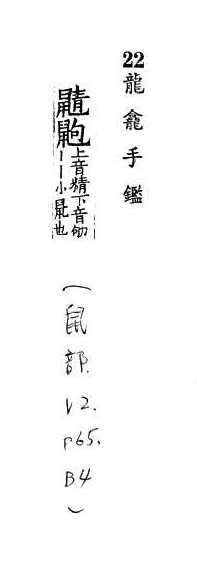 22 龍龕手鑑
鼱鼩 上音精下音劬
丨丨小鼠也
(鼠部. V2. P65. B4)